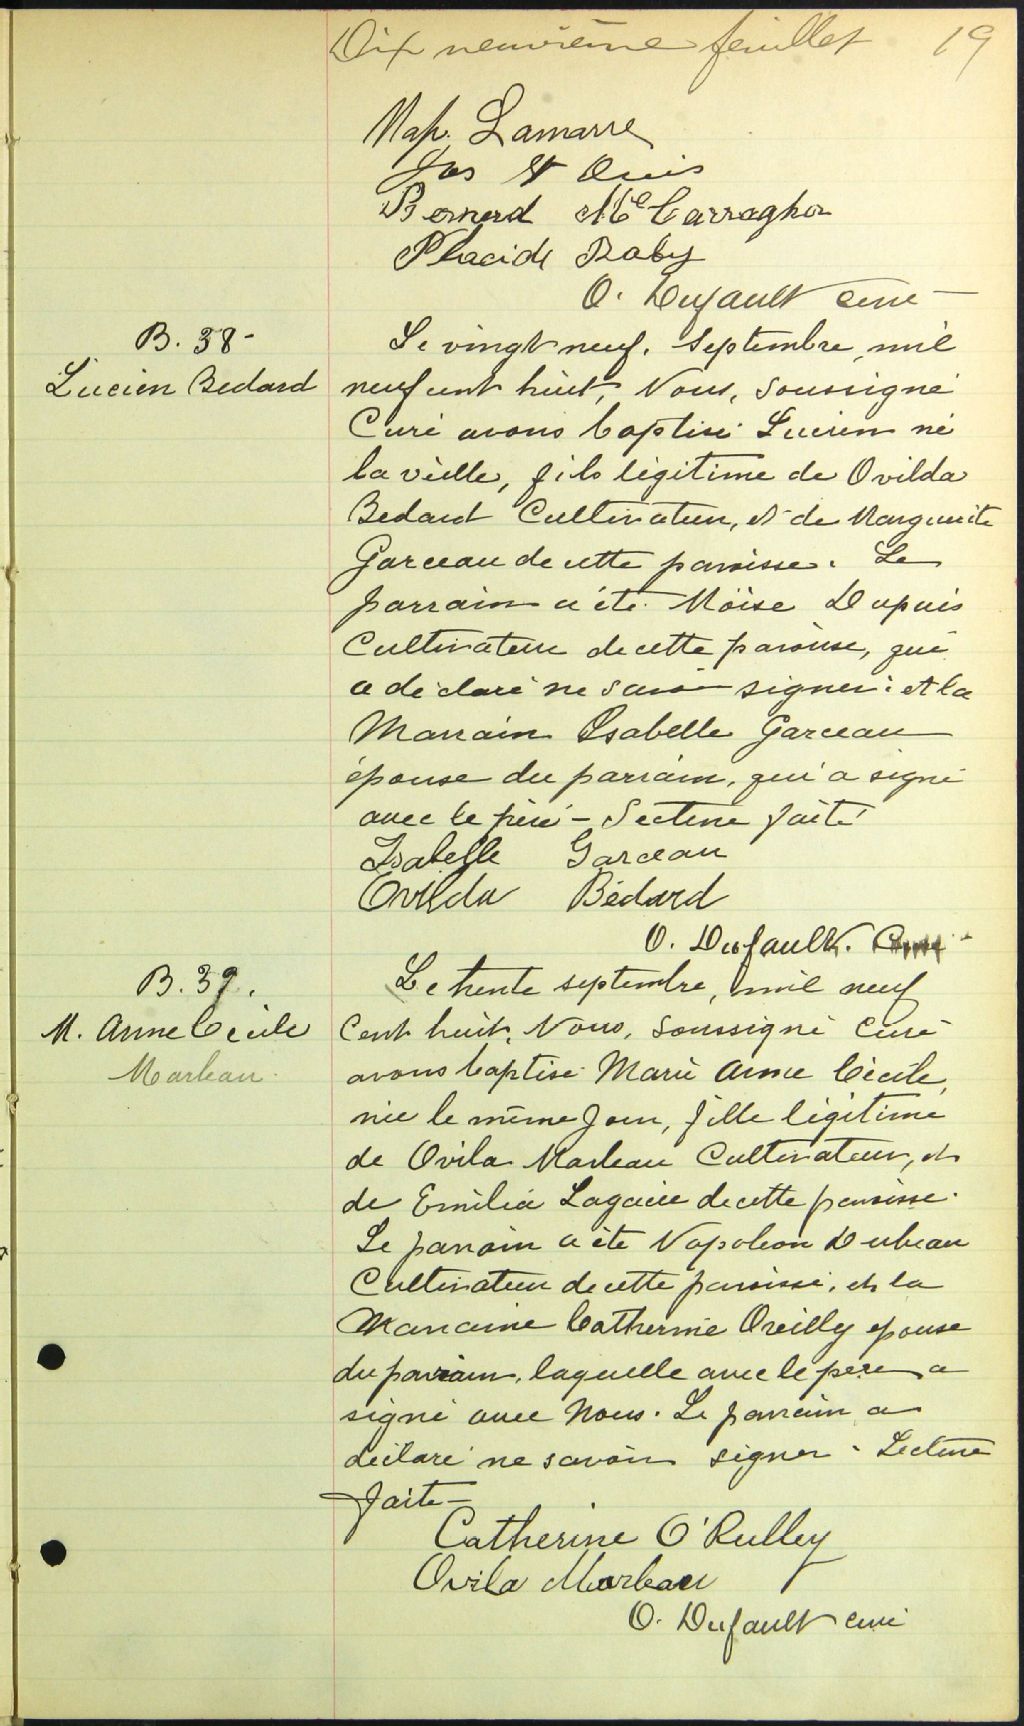 Dix neuvième feuillet 19
Nap. Lamarre
Jos St Onis
Bernard McCarragher
Placide Raby
O. Dufault curé
B. 38
Lucien Bedard
Le vingt neuf, Septembre, mil
neuf cent huit, Nous, soussigné
Curé avons baptisé Lucien né
la veille, fils légitime de Ovilda
Bedard Cultivateur, et de Marguerite
Garceau de cette paroisse. Le
parrain a été Moïse Dupuis
Cultivateur de cette paroisse, qui
a déclaré ne savoir signer: et la
Marraine Isabelle Garceau
épouse du parrain, qui a signé
avec le père - Lecture faite
Isabelle Garceau
Ovilda Bédard
O. Dufault. Curé
B. 39.
M. Anne Cécile
Marleau
Le trente septembre, mil neuf
Cent huit, Nous, soussigné Curé
avons baptisé Marie Anne Cécile,
née le même jour, fille légitime
de Ovila Marleau Cultivateur, et
de Emélia Lagacée de cette paroisse.
Le parrain a été Napoléon Dubeau
Cultivateur de cette paroisse, et la
Marraine Catherine Oreilly epouse
du parrain, laquelle avec le père a
signé avec Nous. Le parrain a
déclaré ne savoir signer. Lecture
faite -
Catherine O'Rulley
Ovila Marleau
O. Dufault curé